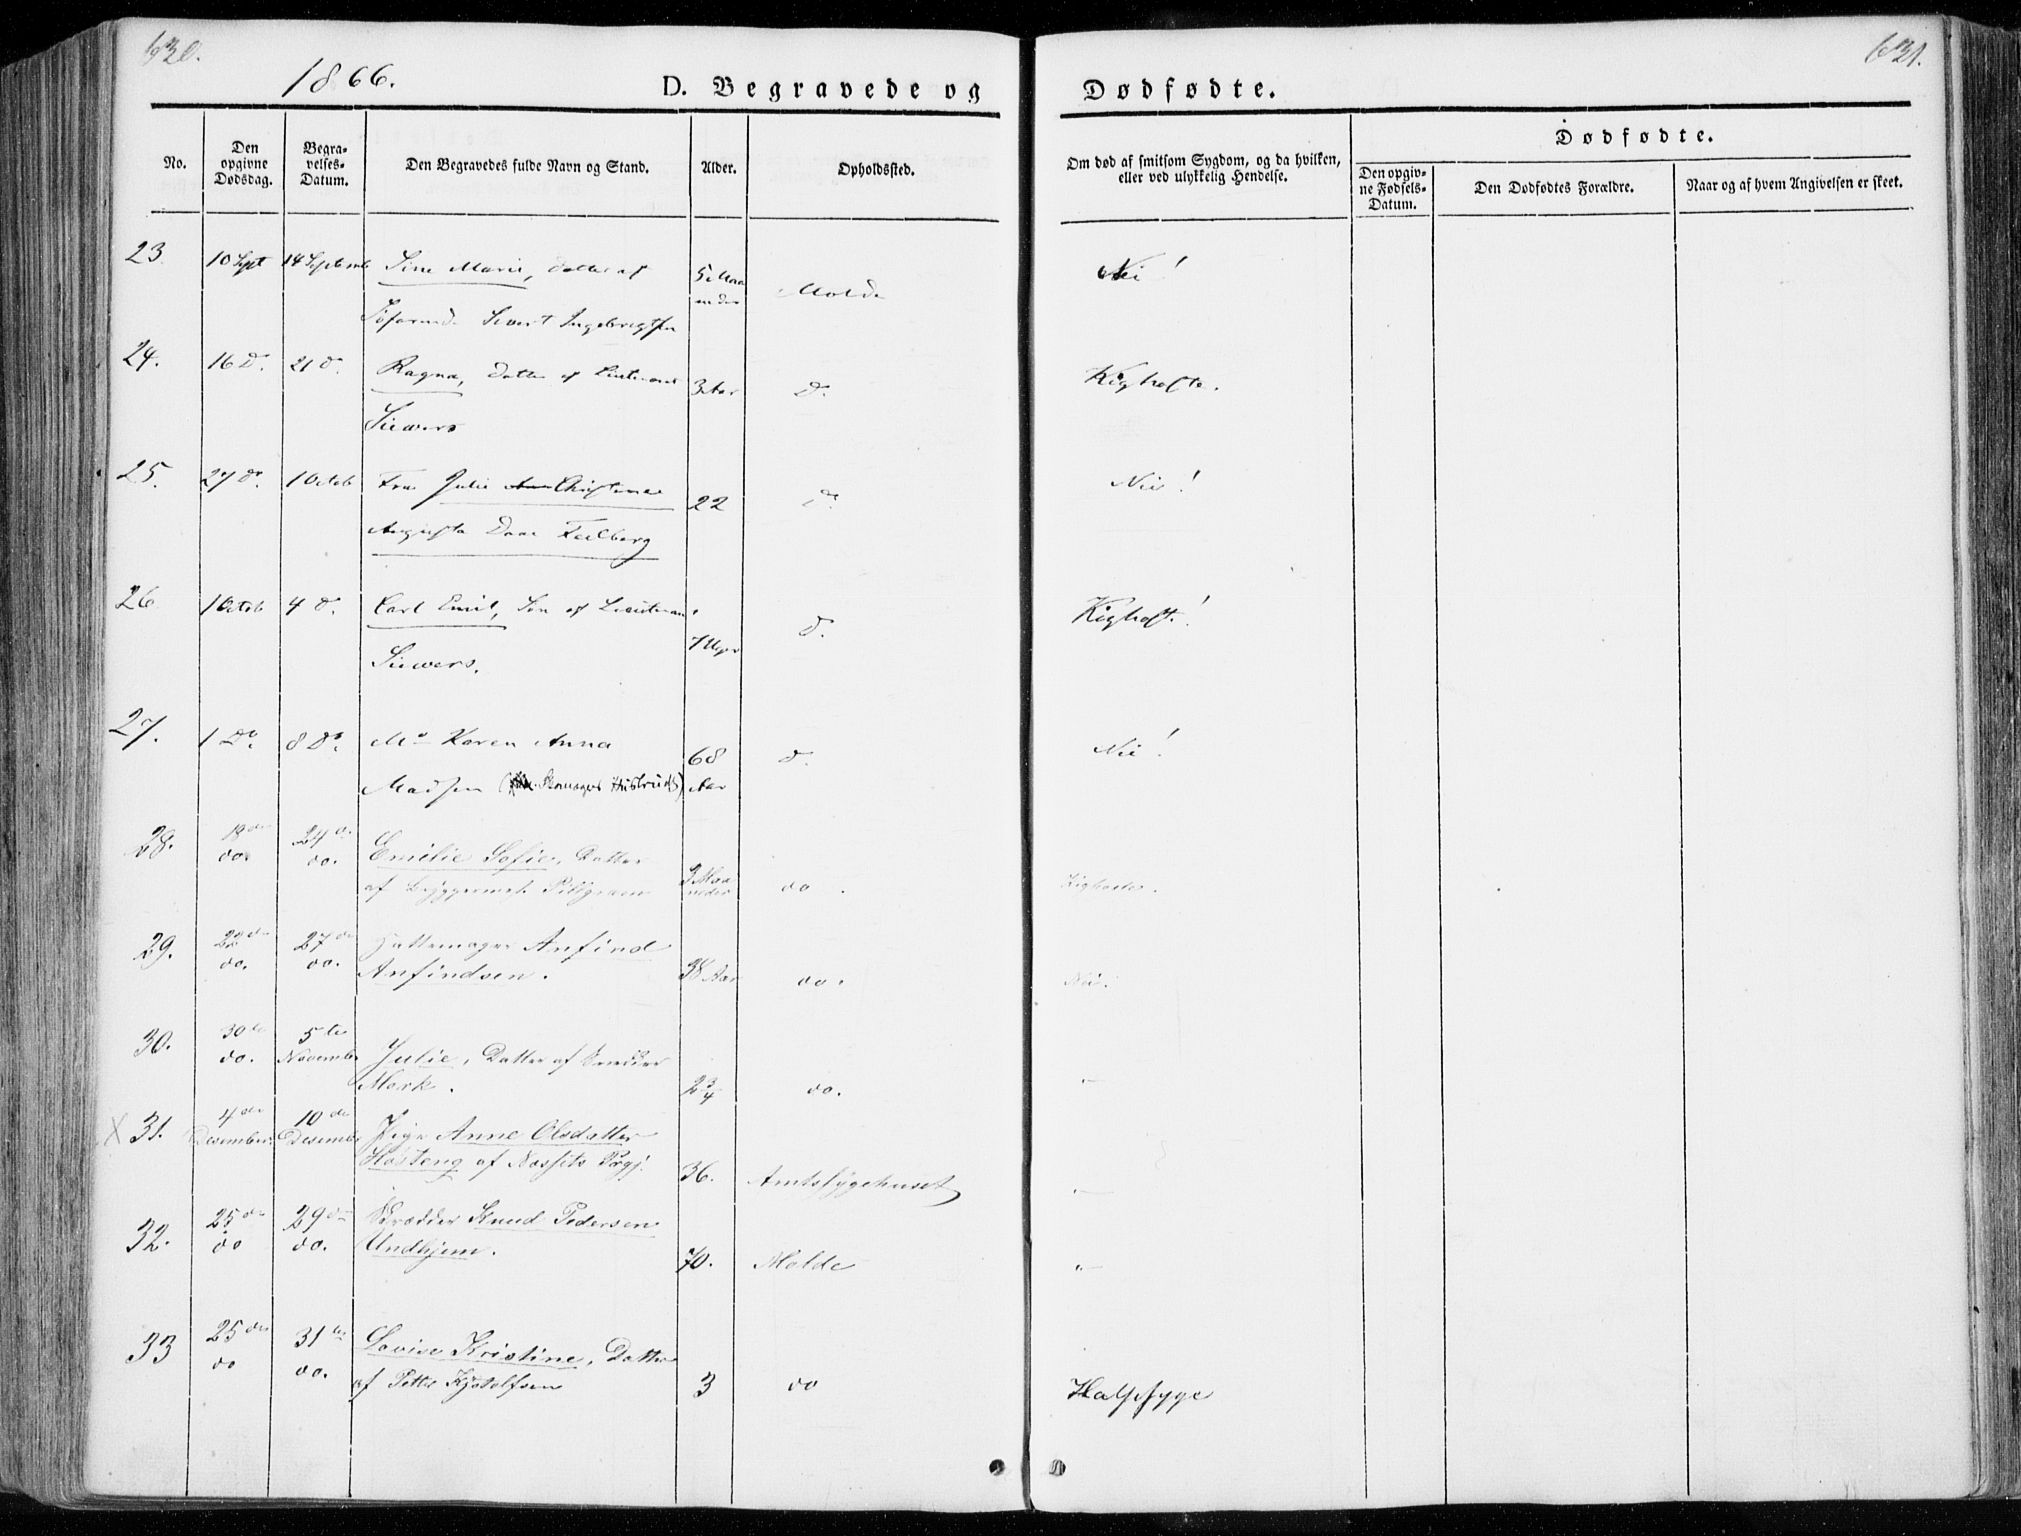 630.
631.
1866.
D. Begravede og Dødfødte.
No.
Den opgivne Dødsdag.
Begravelses-Datum.
Den Begravedes fulde Navn og Stand.
Alder.
Opholdssted.
Om død af smitsom Sygdom, og da hvilken, eller ved ulykkelig Hendelse.
Dødfødte.
Den opgivne Fødsels-Datum.
Den Dødfødtes Forældre.
Naar og af hvem Angivelsen er skeet.
23. 10 Sept 14 Septemb Sine Marie, Datter af 5 Maa Molde Nei!
Søfarende Sivert Ingebrigtsen neder
24. 16 D. 21 D. Ragna, Datter af Lieutenant 3 Aar D. Kighoste.
Siewers
25. 27 Do. 1 Octob Frue Julie Christine 22 Do Nei!
Augusta Daae Feilberg
26 1 Octob 4 D. Carl Emil, Søn af Lieutenan D. Kighost.!
Siewers. 7 Uger
27. 1 Do. 8 Do. Md Karen Anna 68 D. Nei!
Madsen (Skomagers Hustrue) Aar
28. 18de do. 24de do. Emilie Sofie, Datter 3 Maa do. Kighoste.
af Byggermest. Pillgram neder
29. 22de do. 27de do. Hattemager Anfind 38 Aar do. Nei.
Anfindsen.
30. 30te do. 5te November Julie, Datter af Snedker
Mork. 2 3/4 do. "
X 31. 4de Desember 10de Desemb Pige Anne Olsdatter
Høsteng af Nessets Prgj. 36. Amtssygehuset "
32. 25de do 29de do. Skrædder Knud Pedersen
Undhjem. 70. Molde "
33 25de do 31te do. Lovise Kristine, Datter
af Petter Kjøtolfsen 3 do Halssyge